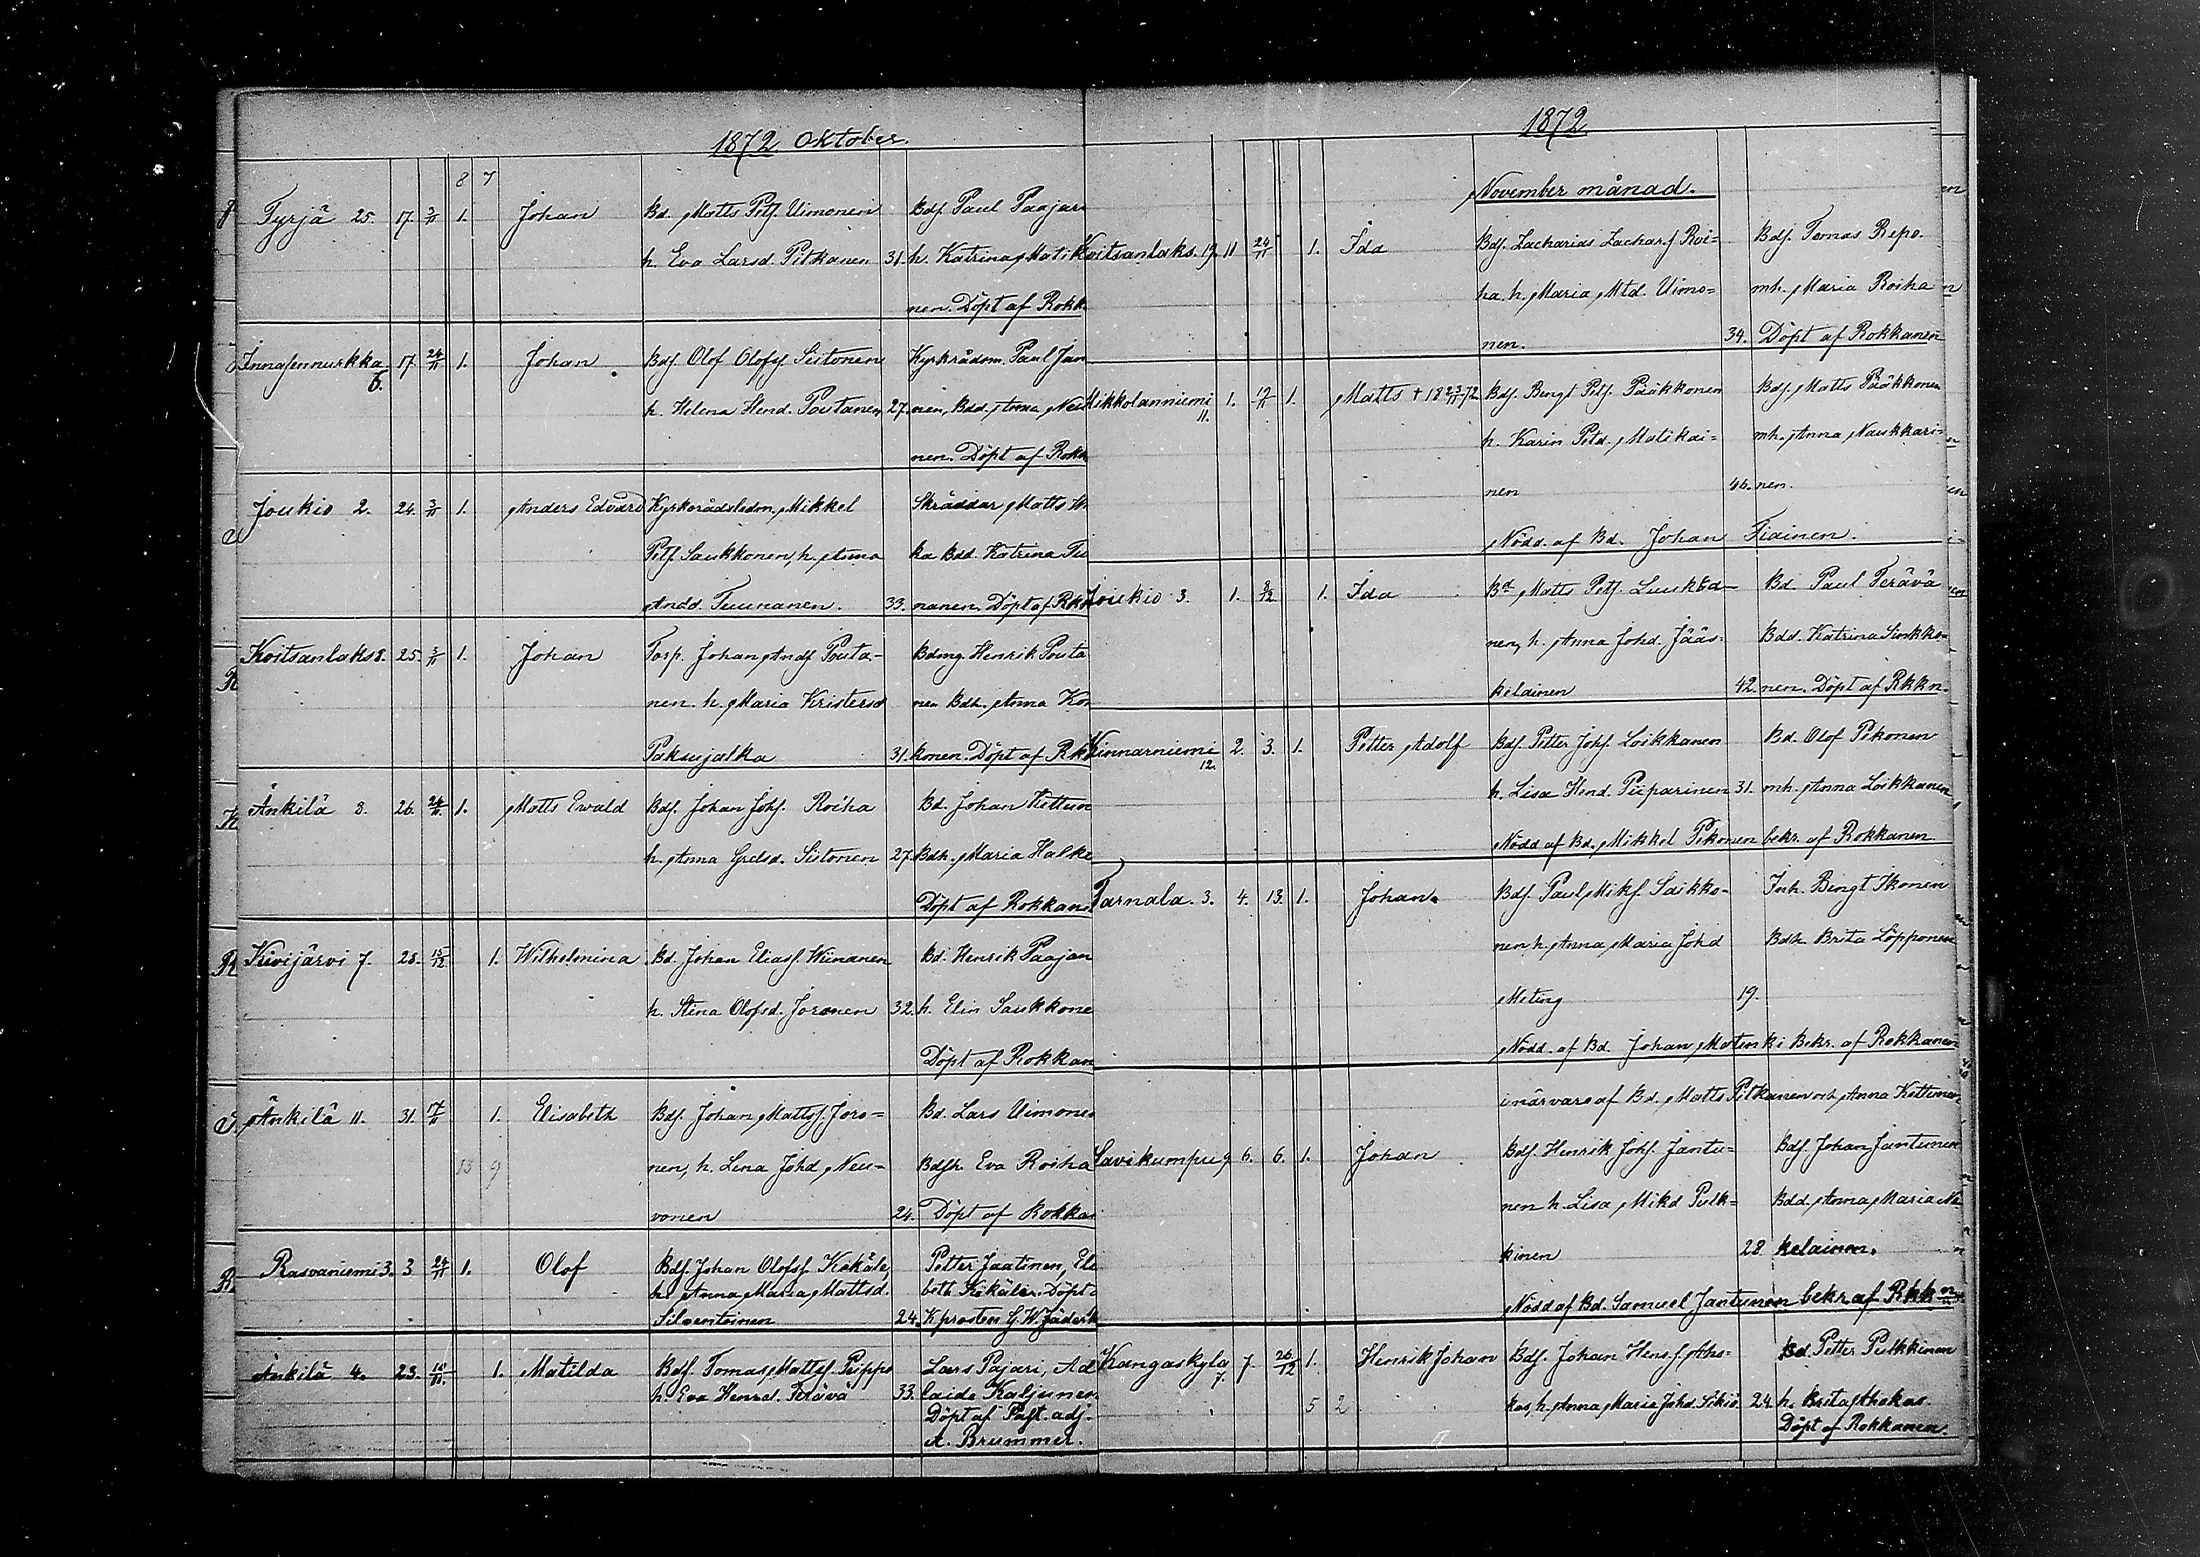 1872 Oktober.
8 7
Tyrjä 25. 17. 3/11 1. Johan Bd. Matts Petf. Uimonen Bdf. Paul Paajar
h. Eva Larsd. Pitkänen 31. h. Katrina Mati
nen. Döpt af Rokk
Innasennurkka 17. 24/11 1. Johan Bdf. Olof Olofsf. Sistonen Kyrkrådsm. Paul Jan
6. h. Helena Hend. Poutanen 27. nen, Bdd. Anna Neu
nen. Döpt af Rokk
Joukio 2. 24. 3/11 1. Anders Edvard Kyrkorådsledm. Mikkel Skräddar Matts
Petf. Saukkonen, h. Anna ka Bdd. Katrina Tu
Andd. Tuunanen. 33. nanen. Döpt af Rkk
Koitsanlaks 8. 25. 3/11 1. Johan Torp. Johan Andf Pouta- Bdmg. Henrik Pouta
nen. h. Maria Kristersd nen Bdh. Anna Ko
Paksujalka 31. konen. Döpt af Rkk
Änkilä 8. 26. 24/11. 1. Matts Ewald Bdf. Johan Johf. Roiha Bd. Johan Kettun
h. Anna Grelsd. Sistonen 27. Bdh. Maria Halke
Döpt af Rokkan
Kivijärvi 7. 28. 15/12 1. Wilhelmina Bd. Johan Eliasf. Wiinanen Bd. Henrik Paajan
h. Stina Olofsd. Joronen 32. h. Elin Saukkone
Döpt af Rokkan
Änkilä 11. 31. 17/11 1. Elisabeth Bdf. Johan Mattsf. Joro= Bd. Lars Uimone
13 9 nen, h. Lena Johd. Neu= Bdfh. Eva Roiha
vonen 24. Döpt af Rokka
Rasvaniemi 3. 3 24/11 1. Olof Bdf. Johan Olofsf. Kokäle, Petter Jaatinen, Eli
h. Anna Maria Mattsd. beth Kekäle. Döpt
Silventoinen 24. Kprosten G. W. Jäderh
Änkilä 4. 23. 10/11. 1. Matilda Bdf. Tomas Mattsf. Peippo Lars Pajari, Ad
h. Eva Henrd. Terävä 33. laide Kaljunen.
Döpt af Past. adj.
A. Brummer.
1872
November månad.
Koitsanlaks. 19. 11 24/11 1. Ida Bdf. Zacharias Zacharf Roi= Bdf. Tomas Repo.
ha. h. Maria Mtd. Uimo= mh. Maria Roiha
nen. 34. Döpt af Rokkanen
Mikkolanniemi 1. 17/11 1. Matts † 18 23/11 72 Bdf. Bengt Petf. Pääkkonen Bdf. Matts Pääkkonen
11. h. Karin Petd. Matikai= mh. Anna Naukkari=
nen 44. nen.
Nödd. af Bd. Johan Tiainen.
Joukio 3. 1. 8/12 1. Ida Bd Matts Petf. Luukko- Bd. Paul Terävä
nen, h. Anna Johd. Jääs- Bdd. Katrina Sinkko-
keläinen 42. nen. Döpt af Rkkn.
Kinnarniemi 2. 3. 1. Petter Adolf Bdf. Petter Johf. Loikkanen Bd. Olof Pekonen
12. h. Lisa Hend. Puparinen 31. mh. Anna Loikkanen
Nödd af Bd. Mikkel Pekonen bekr. af Rokkanen
Tarnala. 3. 4. 13. 1. Johan. Bdf. Paul Mikf. Saikko- Inh. Bengt Ikonen
nen h. Anna Maria Johd Bdh. Brita Löpponen
Meting 19.
Nödd. af Bd. Johan Matinki Bekr. af Rokkanen
i närvaro af Bd. Matts Pitkänen och Anna Kettunen
Savikumpu 9 6. 6. 1. Johan Bdf. Henrik Johf. Jantu- Bdf. Johan Jantunen
nen h. Lisa Mikd Pulk= Bdd. Anna Maria Nä
kinen 28 kelainen.
Nödd af Bd. Samuel Jantunen bekr. af Rkk
Kangaskylä 7. 26/12 1. Henrik Johan Bdf. Johan Hensf. Aho- Bd. Petter Pulkkinen
7. 5 2 kas, h. Anna Maria Johd. Sikiö 24. h. Brita Ahokas.
Döpt af Rokkanen.